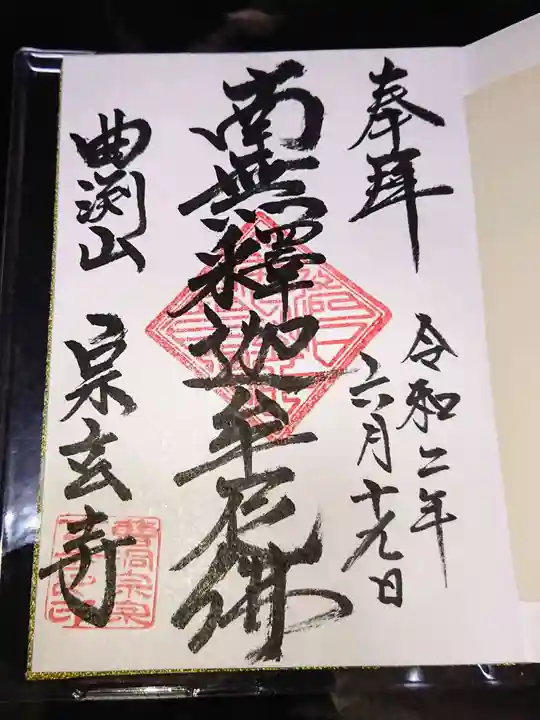 奉拜
令和二年
六月十九日
南無釋迦牟尼佛
曲渕山
宗玄寺